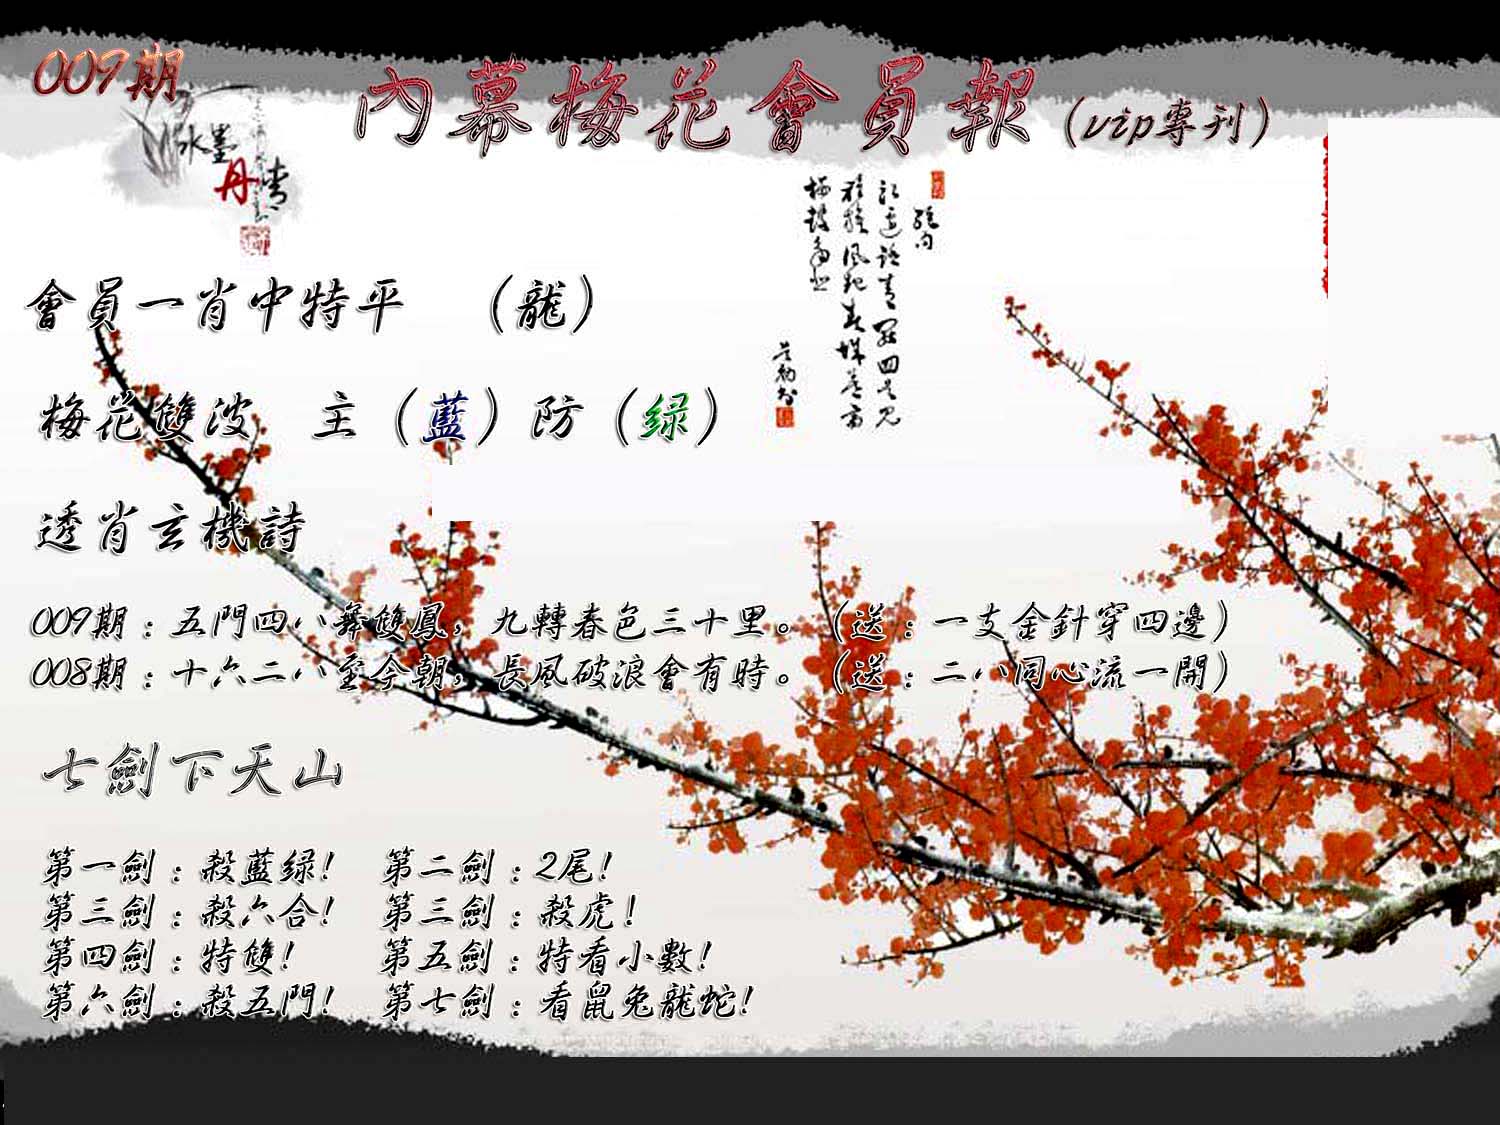 009期
內幕梅花會員報(vip專刊)
水墨
丹青
會員一肖中特平 （龍）
梅花雙波 主（藍）防（绿）
透肖玄機詩
009期：五門四八舞雙鳳，九轉春色三十里。（送：一支金針穿四邊）
008期：十六二八至今朝，長風破浪會有時。（送：二八同心流一開）
七劍下天山
第一劍：殺藍绿! 第二劍：2尾!
第三劍：殺六合! 第三劍：殺虎!
第四劍：特雙! 第五劍：特看小數!
第六劍：殺五門! 第七劍：看鼠兔龍蛇!